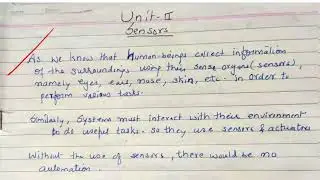 Unit-II
Sensors
As we know that human beings collect information
of the surroundings using their sense organs (sensors),
namely eyes, ears, nose, skin, etc. in order to
perform various tasks.
Similarly, Systems must interact with their environment
to do useful tasks. so they use sensors & actuators
Without the use of sensors, there would be no
automation.